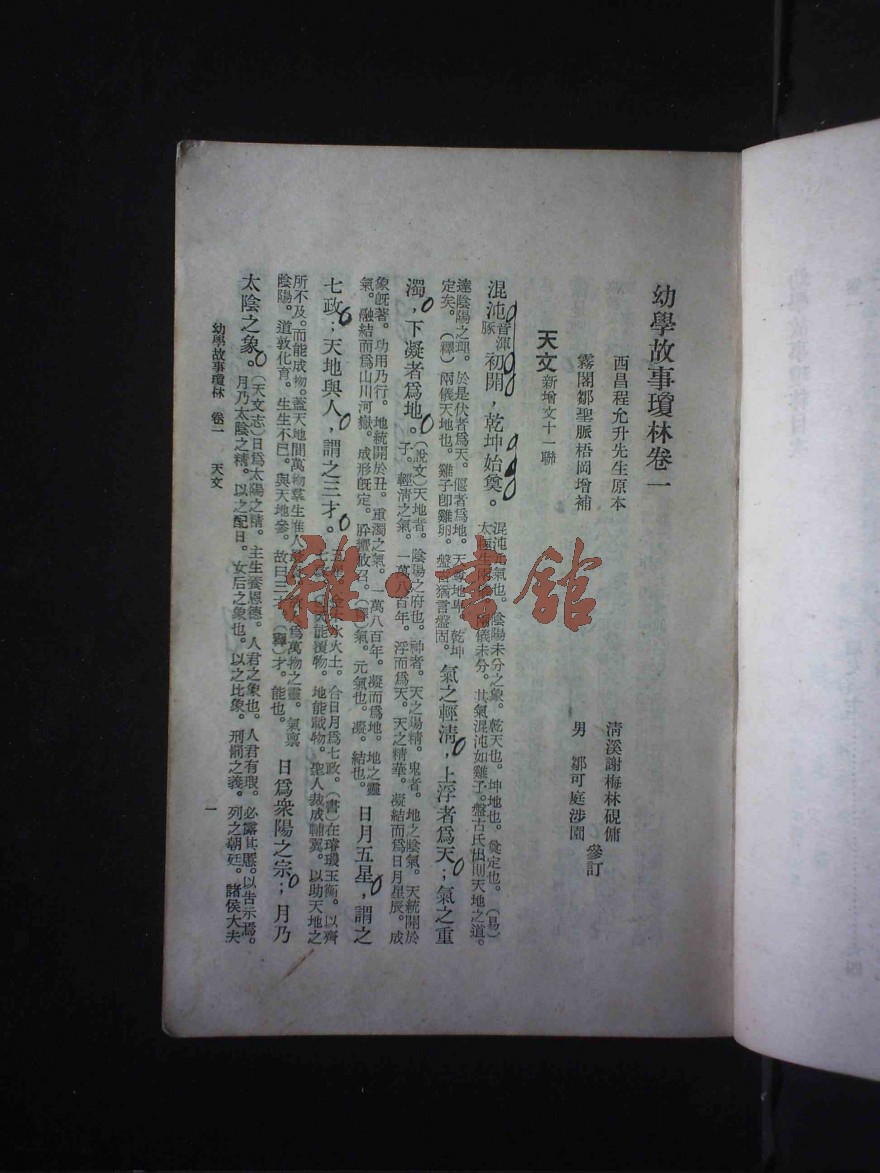 幼學故事瓊林卷一
西昌程允升先生原本
霧閣鄒聖脈梧岡增補
清溪謝梅林硯傭
男 鄒可庭涉園
參訂
天文 新增文十一聯
混沌 音渾 豚 初開，乾坤始奠。 混沌元氣也。陰陽未分之象。乾天也。坤地也。奠定也。（易）
太極生兩儀。兩儀未分。其氣混沌如雞子。盤古氏出則天地之道。
達陰陽之理。於是伏者爲天。偃者爲地。天尊地卑。乾坤
定矣。（釋）兩儀天地也。雞子卽雞卵。盤古猶言盤固。 氣之輕清，上浮者爲天；氣之重
濁，下凝者爲地。 （說文）天地者。陰陽之府也。神者。天之陽精。鬼者。地之陰氣。天統開於
子。輕清之氣。一萬八百年。浮而爲天。天之精華。凝結而爲日月星辰。成
象旣著。功用乃行。地統開於丑。重濁之氣。一萬八百年。凝而爲地。地之靈
氣。融結而爲山川河嶽。成形旣定。肸蠁攸召。（釋）氣。元氣也。凝。結也。 日月五星，謂之
七政；天地與人，謂之三才。 五星。金木水火土。合日月爲七政。（書）在璿璣玉衡。以齊
七政。天能覆物。地能載物。聖人裁成輔翼。以助天地之
所不及。而能成物。蓋天地間萬物羣生惟人爲萬物之靈。氣禀
陰陽。道敦化育。生生不已。與天地參。故曰三才。（釋）才。能也。 日爲衆陽之宗；月乃
太陰之象。 （天文志）日爲太陽之精。主生養恩德。人君之象也。人君有瑕。必露其慝。以告示焉。
月乃太陰之精。以之配日。女后之象也。以之比象。刑罰之義。列之朝廷。諸侯大夫
幼學故事瓊林 卷一 天文
一
雜·書館